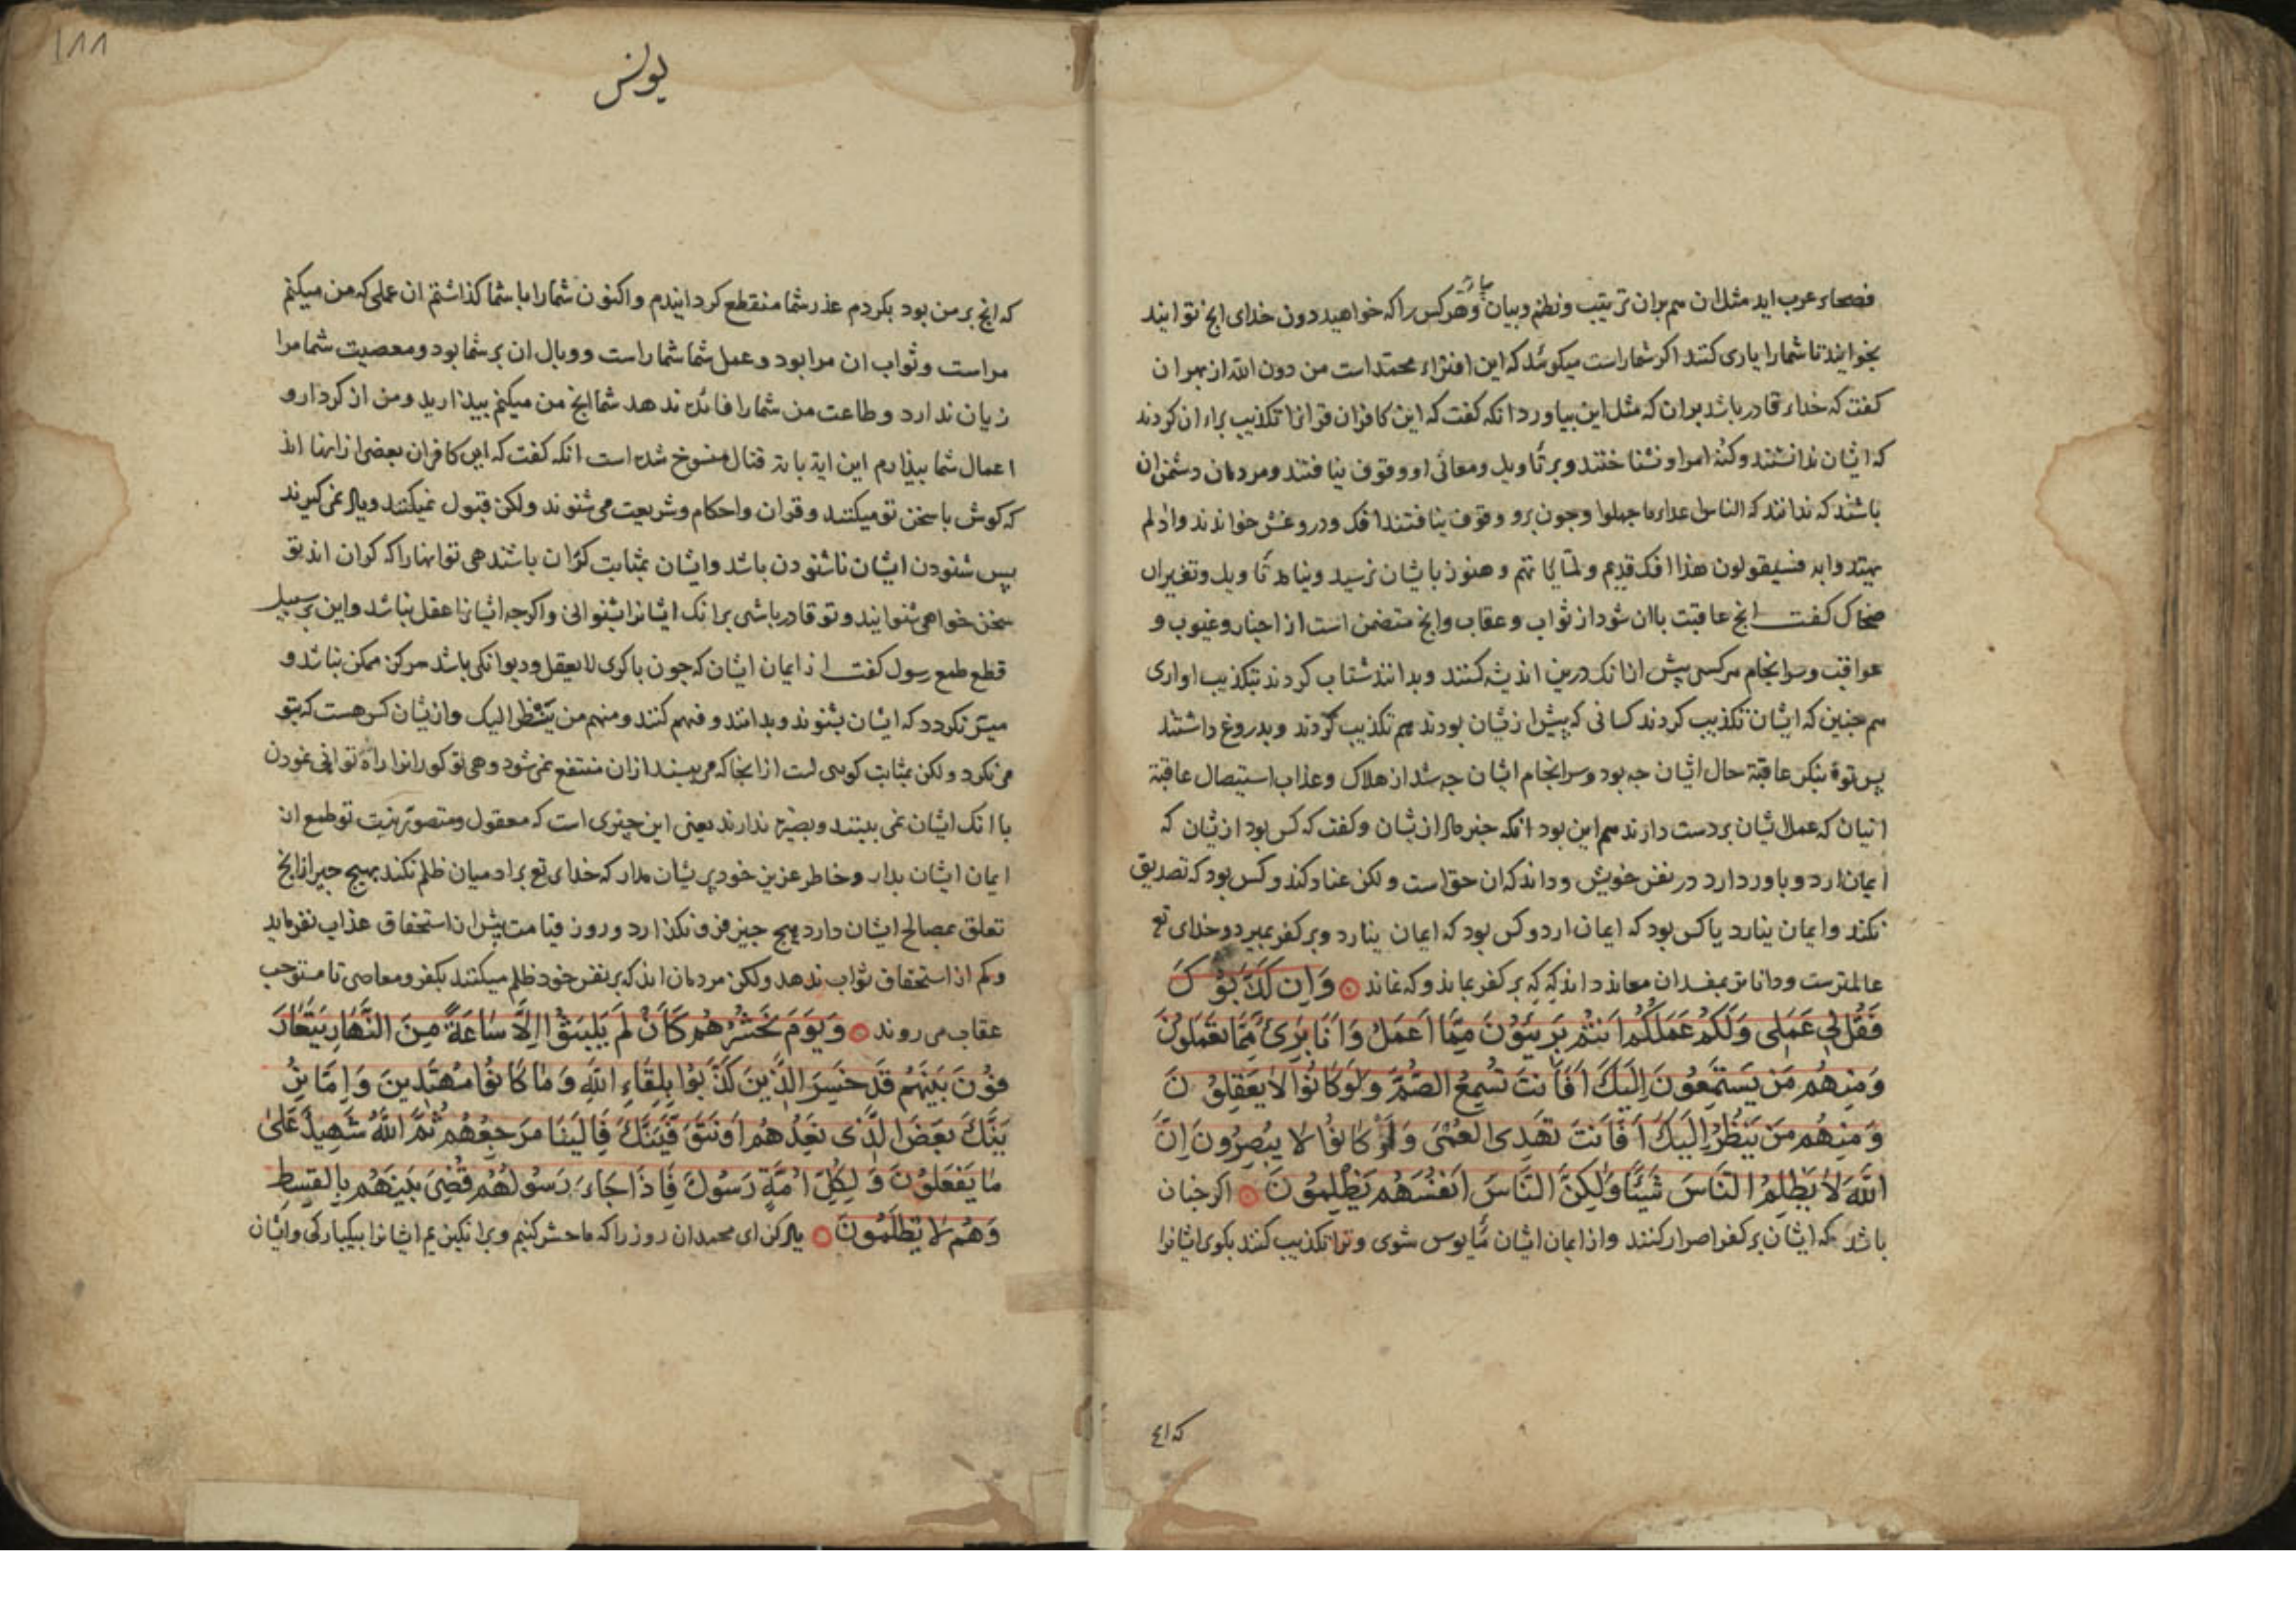 فصحاء عرب اید مثل ان هم بران ترتیب و نظم و بیان بیارید و هر کس را که خواهید دون خدای انج توانید
بخوانید تا شما را یاری کنند اکر شما راست میکوئید که این افتراء محمد است من دون الله از بهر ان
کفت که خداء قادر باشد بران که مثل این بیاورد انکه کفت که این کافران قرانرا تکذیب براء ان کردند
که ایشان ندانستند و کنه امر او نشناختند و بر تأویل و معانی او وقوف نیافتند و مردمان دشمن ان
باشند که ندانند که الناس اعداء ما جهلوا و جون برو وقوف نیافتند افک و دروغش خواندند واذ لم
یهتدوا به فسیقولون هذا افک قدیم ولما یاتهم و هنوز بایشان نرسید و نیامد تاویل و تفسیر ان
ضحاک کفت انج عاقبت باان شود از ثواب و عقاب و انج متضمن است از اخبار و غیوب و
عواقب و سرانجام هر کسی پیش از انک درین اندیشه کنند و بدانند شتاب کردند بتکذیب او اری
هم جنین که ایشان تکذیب کردند کسانی که پیش از یشان بودند هم تکذیب کردند و بدروغ داشتند
پس تو بنکر عاقبة حال ایشان جه بود و سرانجام ایشان جه شد از هلاک و عذاب استیصال عاقبة
انیان که عمل ایشان بردست دارند هم این بود انکه خبر داد از یشان و کفت که کس بود از یشان که
ایمان ارد و باور دارد در نفس خویش و داند که ان حق است و لکن عناد کند و کس بود که تصدیق
نکند و ایمان نیارد یا کس بود که ایمان ارد و کس بود که ایمان نیارد و بر کفر بمیرد و خدای تع
عالمترست و داناتر بمفسدان معاند داند که که بر کفر بماند و که نماند وَاِن كَذَّبُوكَ
فَقُل لِي عَمَلِي وَلَكُمْ عَمَلُكُمْ اَنتُم بَرِيئُونَ مِمَّا اَعْمَلُ وَاَنَا بَرِيءٌ مِمَّا تَعْمَلُونَ
وَمِنهُم مَن يَستَمِعُونَ اِلَيكَ اَفَاَنتَ تُسمِعُ الصُّمَّ وَلَو كَانُوا لَا يَعقِلُونَ
وَمِنهُم مَن يَنظُرُ اِلَيكَ اَفَاَنتَ تَهدِى العُمىَ وَلَو كَانُوا لَا يُبصِرُونَ اِنَّ
اللَّهَ لَا يَظلِمُ النَّاسَ شَيئًا وَلكِنَّ النَّاسَ اَنفُسَهُم يَظلِمُونَ اکر جنان
باشد که ایشان بر کفر اصرار کنند و از ایمان ایشان مایوس شوی و ترا تکذیب کنند بکوی ایشانرا
یونس
١٨٨
که انج بر من بود بکردم عذر شما منقطع کردانیدم و اکنون شما را با شما کذاشتم ان عملی که من میکنم
مراست و ثواب ان مرا بود و عمل شما شما راست و وبال ان بر شما بود و معصیت شما مرا
زیان ندارد و طاعت من شما را فائده ندهد شما انج من میکنم بیزارید و من از کردار و
اعمال شما بیزارم این ایة بایة قتال منسوخ شده است انکه کفت که این کافران بعضی ازانها اند
که کوش با سخن تو میکنند و قران و احکام و شریعت می شنوند ولکن قبول نمیکنند و یاد نمی کیرند
پس شنودن ایشان ناشنودن باشد و ایشان بمثابت کران باشند هی توانها را که کران اند تو
سخن خواهی شنوانید و تو قادر باشی برانک ایشانرا بشنوانی و اکرجه ایشانرا عقل نباشد و این بر سبیل
قطع طمع رسول کفت از ایمان ایشان که جون با کری لا یعقل و دیوانکی باشد هرکز ممکن نباشد و
میسر نکردد که ایشان بشنوند و بدانند و فهم کنند و منهم من ینظر الیک و از یشان کس هست که بتو
می نکرد ولکن بمثابت کوری است ازانجا که می بیند ازان منتفع نمی شود و هی تو کورانرا راه توانی نمودن
باانک ایشان نمی بینند و بصیرة ندارند یعنی این چیزی است که معقول و متصور نیست تو طمع از
ایمان ایشان بدار و خاطر عزیز خود پریشان مدار که خدای تع بر ادمیان ظلم نکند بهیج جیز از انج
تعلق بمصالح ایشان دارد هیج جیز فرو نکذارد و روز قیامت بیش از استحقاق عذاب نفرماید
و کم از استحقاق ثواب ندهد ولکن مردمان اند که بر نفس خود ظلم میکنند بکفر و معاصی تا مستوجب
عقاب می روند وَيَومَ نَحشُرُهُم كَاَن لَم يَلبَثُوا اِلَّا سَاعَةً مِنَ النَّهَارِ يَتَعَارَ
فُونَ بَينَهُم قَد خَسِرَ الَّذِينَ كَذَّبُوا بِلِقَاءِ اللَّهِ وَمَا كَانُوا مُهتَدِينَ وَاِمَّا نُرِ
يَنَّكَ بَعضَ الَّذِى نَعِدُهُم اَو نَتَوَفَّيَنَّكَ فَاِلَينَا مَرجِعُهُم ثُمَّ اللَّهُ شَهِيدٌ عَلَى
مَا يَفعَلُونَ وَلِكُلِّ اُمَّةٍ رَسُولٌ فَاِذَا جَاءَ رَسُولُهُم قُضِىَ بَينَهُم بِالقِسطِ
وَهُم لَا يُظلَمُونَ یاد کن ای محمد ان روز را که ما حشر کنیم و برانکیزیم ایشانرا بیکبارکی و ایشان